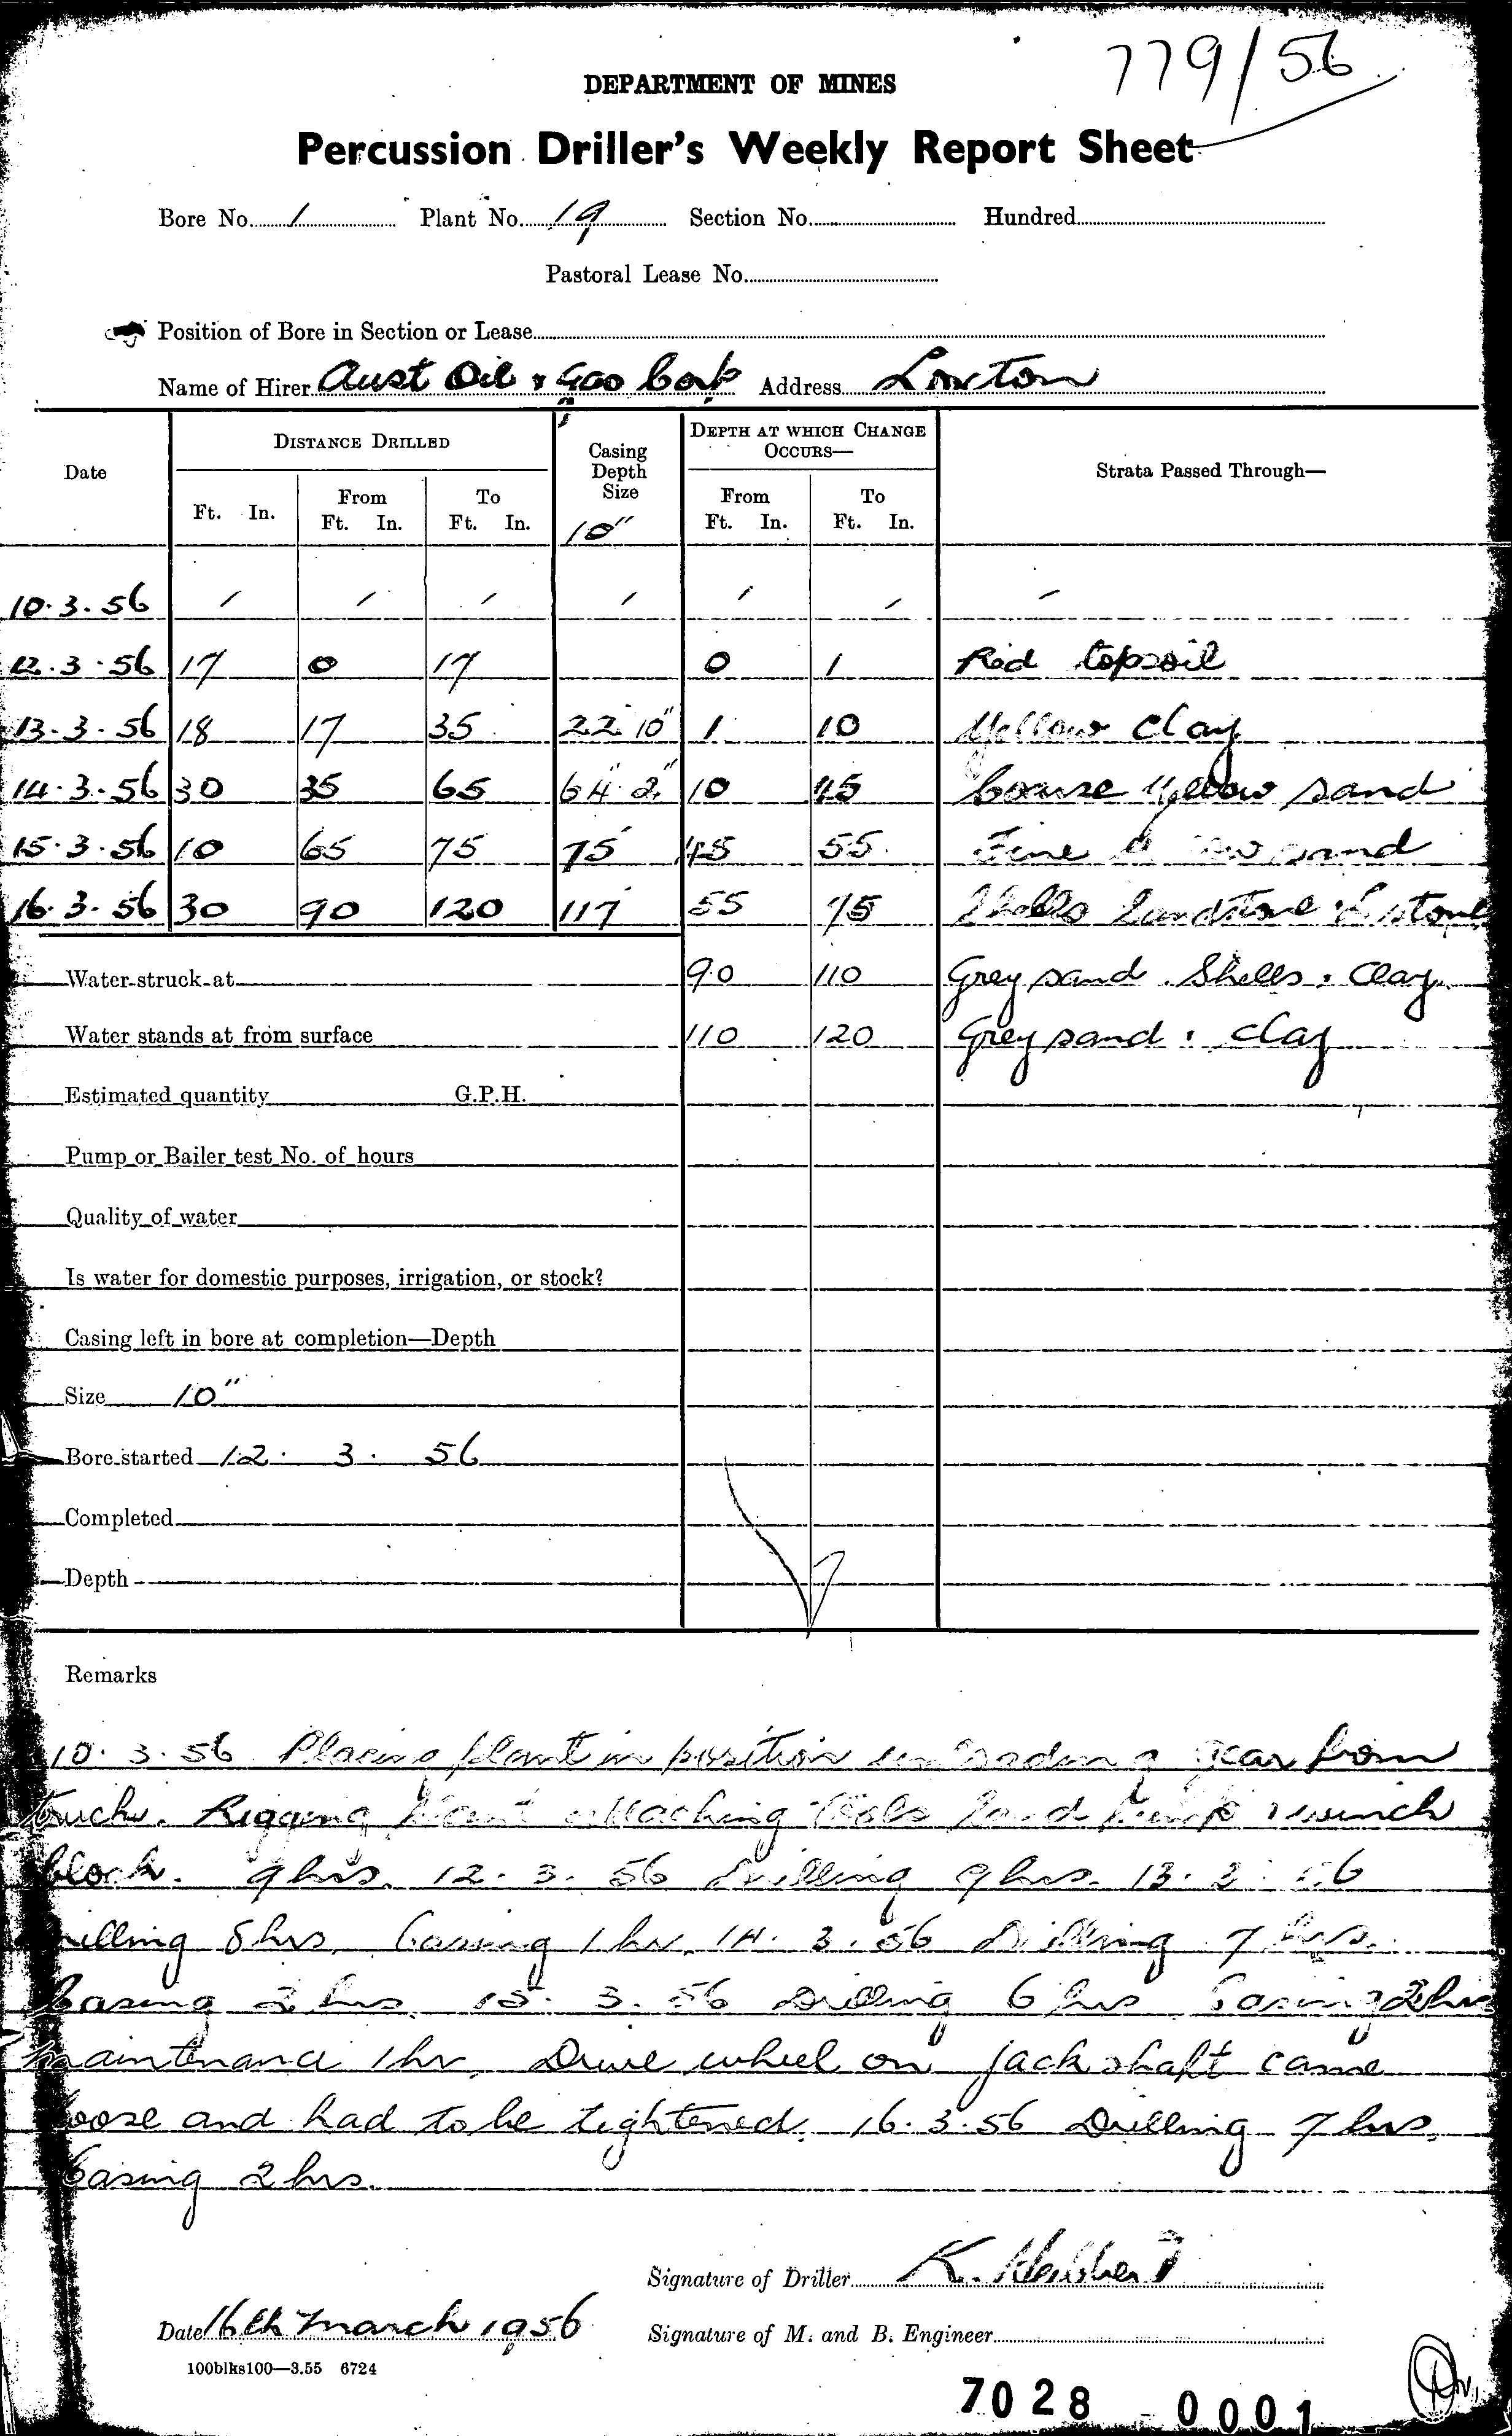 779/56
DEPARTMENT OF MINES
Percussion Driller's Weekly Report Sheet
Bore No. 1 Plant No. 19 Section No. Hundred
Pastoral Lease No.
Position of Bore in Section or Lease
Name of Hirer Aust Oil & Gas Corp Address Loxton
Date DISTANCE DRILLED Casing Depth Size 10" DEPTH AT WHICH CHANGE OCCURS— Strata Passed Through—
Ft. In. From Ft. In. To Ft. In. From Ft. In. To Ft. In.
10.3.56 / / / / / / /
12.3.56 17 0 17 0 1 Red topsoil
13.3.56 18 17 35 22' 10" 1 10 Yellow Clay
14.3.56 30 35 65 64' 2" 10 45 Coarse Yellow sand
15.3.56 10 65 75 75' 45 55 Fine sand
16.3.56 30 90 120 117' 55 75 Shells Sandstone
Water struck at 90 110 Grey sand. Shells & Clay
Water stands at from surface 110 120 Grey sand & clay
Estimated quantity G.P.H.
Pump or Bailer test No. of hours
Quality of water
Is water for domestic purposes, irrigation, or stock?
Casing left in bore at completion—Depth
Size 10"
Bore started 12. 3. 56
Completed
Depth
Remarks
10.3.56 Placing plant in position unloading gear from
truck. Rigging plant attaching tools sand pump & winch
block. 9 hrs. 12.3.56 Drilling 9 hrs. 13.3.56
Drilling 8 hrs. Casing 1 hr. 14.3.56 Drilling 7 hrs.
Casing 2 hrs. 15.3.56 Drilling 6 hrs Casing 2 hrs
maintenance 1 hr. Drive wheel on jackshaft came
loose and had to be tightened. 16.3.56 Drilling 7 hrs.
Casing 2 hrs.
Signature of Driller K.
Date 16th March 1956 Signature of M. and B. Engineer
100blks100—3.55 6724
7028 0001